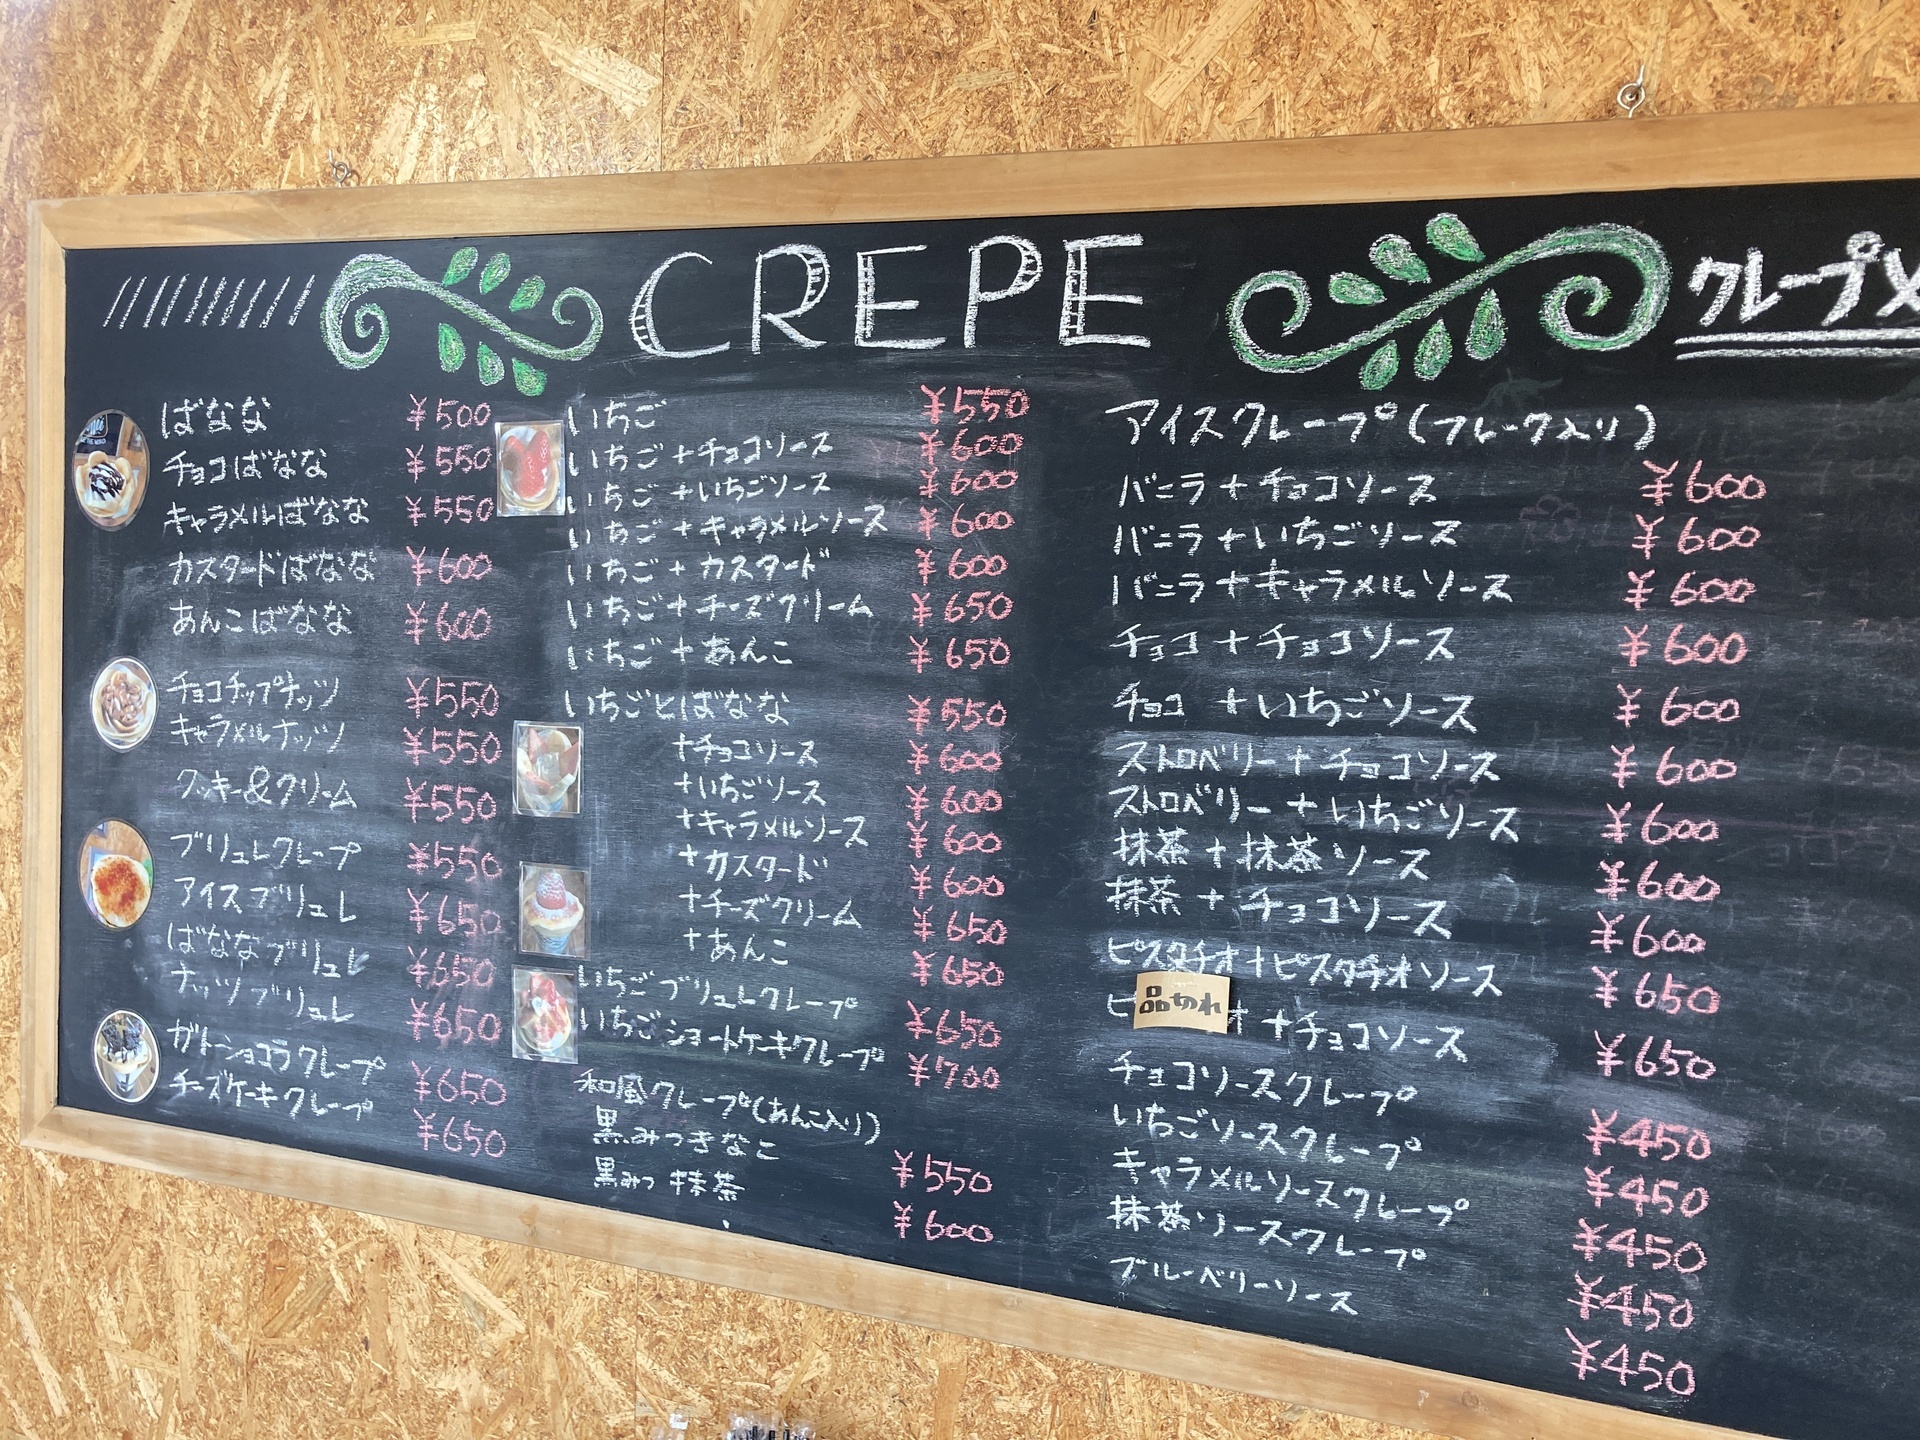 CREPE
クレープメ
ばなな ¥500
チョコばなな ¥550
キャラメルばなな ¥550
カスタードばなな ¥600
あんこばなな ¥600
チョコチップナッツ ¥550
キャラメルナッツ ¥550
クッキー&クリーム ¥550
ブリュレクレープ ¥550
アイスブリュレ ¥650
ばななブリュレ ¥650
ナッツブリュレ ¥650
ガトーショコラクレープ ¥650
チーズケーキクレープ ¥650
いちご ¥550
いちご+チョコソース ¥600
いちご+いちごソース ¥600
いちご+キャラメルソース ¥600
いちご+カスタード ¥600
いちご+チーズクリーム ¥650
いちご+あんこ ¥650
いちごとばなな ¥550
+チョコソース ¥600
+いちごソース ¥600
+キャラメルソース ¥600
+カスタード ¥600
+チーズクリーム ¥650
+あんこ ¥650
いちごブリュレクレープ ¥650
いちごショートケーキクレープ ¥700
和風クレープ(あんこ入り)
黒みつきなこ ¥550
黒みつ抹茶 ¥600
アイスクレープ(フレーク入り)
バニラ+チョコソース ¥600
バニラ+いちごソース ¥600
バニラ+キャラメルソース ¥600
チョコ+チョコソース ¥600
チョコ+いちごソース ¥600
ストロベリー+チョコソース ¥600
ストロベリー+いちごソース ¥600
抹茶+抹茶ソース ¥600
抹茶+チョコソース ¥600
ピスタチオ+ピスタチオソース ¥650
品切れ
+チョコソース ¥650
チョコソースクレープ ¥450
いちごソースクレープ ¥450
キャラメルソースクレープ ¥450
抹茶ソースクレープ ¥450
ブルーベリーソース ¥450